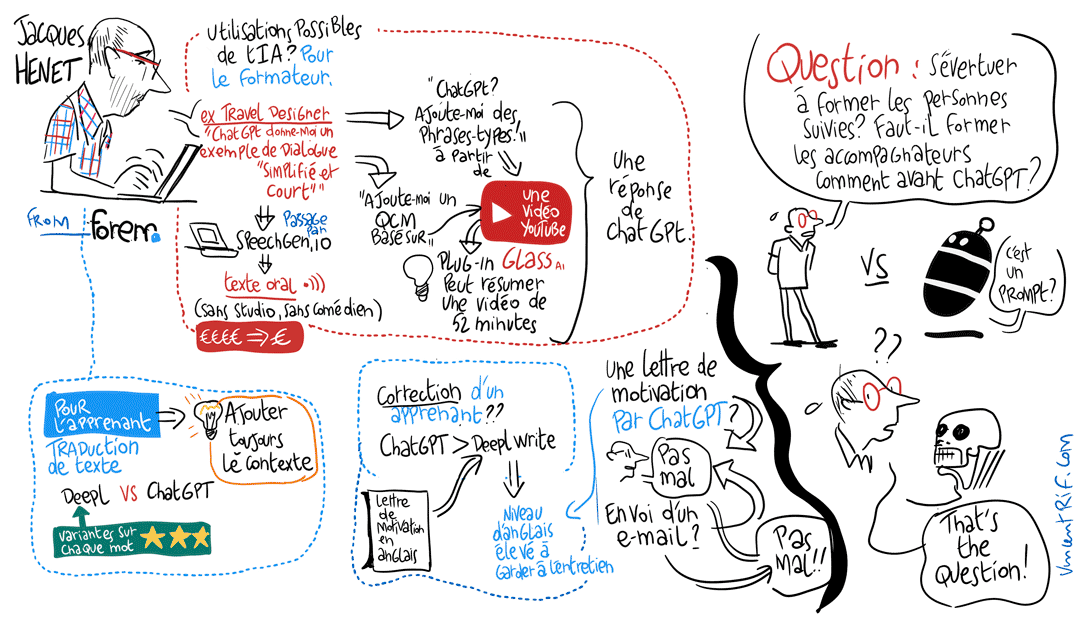 Jacques
HENET
utilisations possibles
de l'IA? Pour
le formateur.
ex Travel Designer
"ChatGpt donne-moi un
exemple de Dialogue
"simplifié et
court""
Passage
par
SpeechGen.IO
texte oral •)))
(sans studio, sans comédien)
€€€€ => €
"ChatGpt?
Ajoute-moi des
Phrases-types!"
à partir
de
"Ajoute-moi un
QCM
Basé sur"
une
vidéo
YouTube
PLUG-IN GLASS AI
Peut résumer
une vidéo de
52 minutes
une
réponse
de
chatGPt.
FROM
forem.
Pour
L'apprenant
TRADUCTION
de texte
DeepL VS ChatGPT
variantes sur
chaque mot
Ajouter
toujours
le contexte
Correction d'un
apprenant??
ChatGPT > DeepL write
Lettre
de
motivation
en
anglais
Niveau
d'anglais
élevé à
garder à l'entretien
une lettre de
motivation
Par ChatGPT?
Pas
mal
Envoi d'un
e-mail?
Pas
mal!!
Question : S'évertuer
à former les personnes
suivies? Faut-il former
les accompagnateurs
comment avant ChatGPT?
VS
c'est
un
PROMPT?
??
That's
the
Question!
VincentRif.com